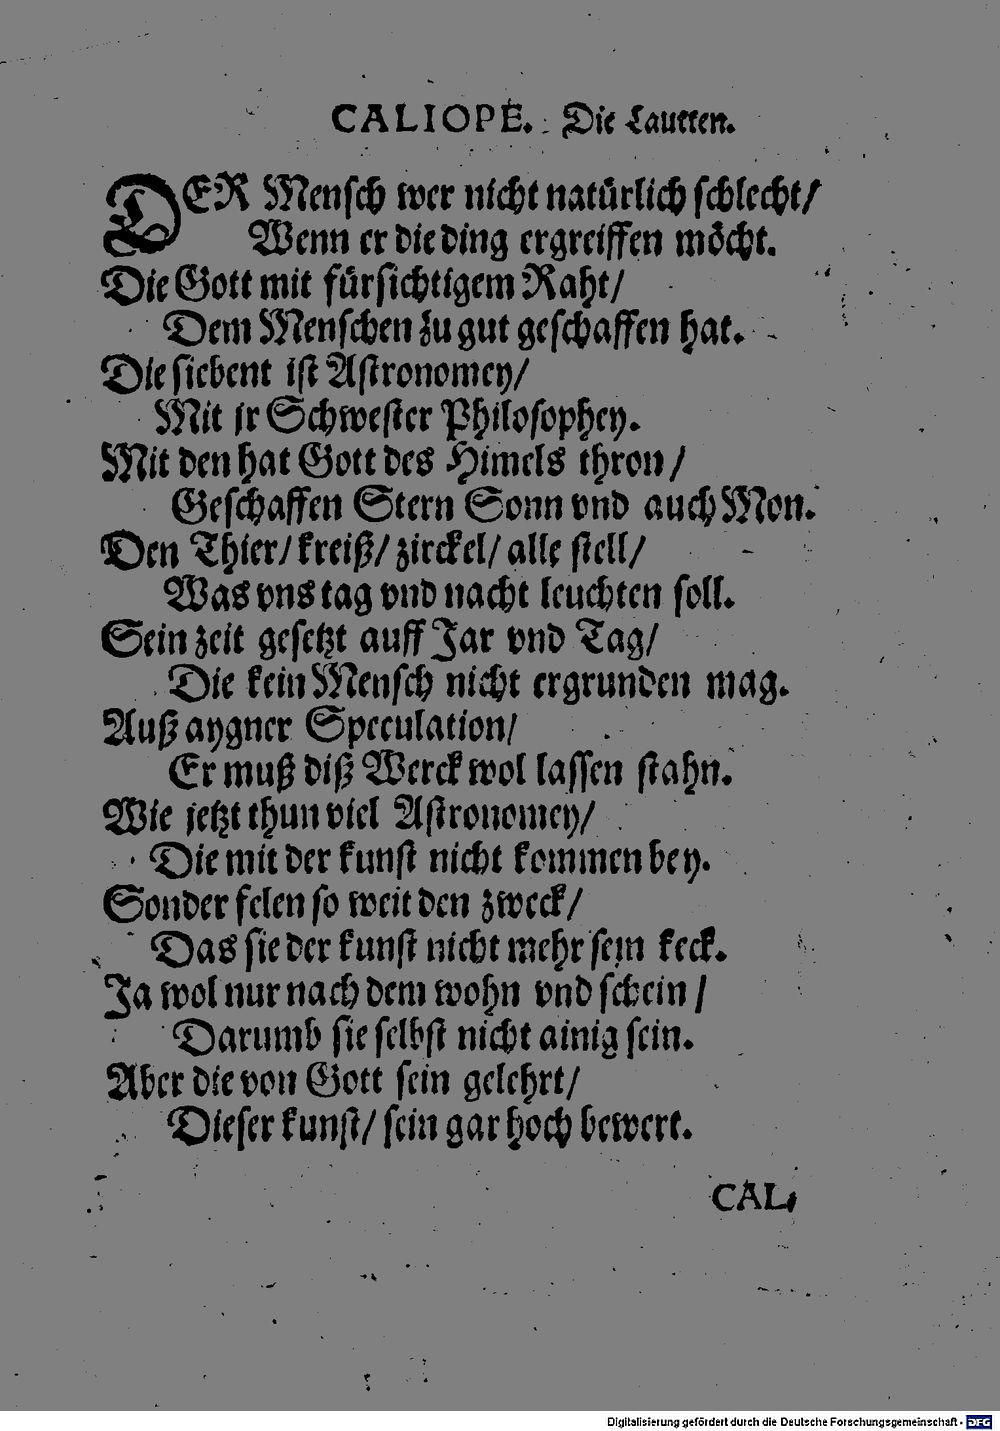 CALIOPE. Die Lautten.
DER Mensch wer nicht natürlich schlecht/
Wenn er die ding ergreiffen möcht.
Die Gott mit fürsichtigem Raht/
Dem Menschen zu gut geschaffen hat.
Die siebent ist Astronomey/
Mit jr Schwester Philosophey.
Mit den hat Gott des Himels thron/
Geschaffen Stern Sonn vnd auch Mon.
Den Thier/ kreiß/ zirckel/ alle stell/
Was vns tag vnd nacht leuchten soll.
Sein zeit gesetzt auff Jar vnd Tag/
Die kein Mensch nicht ergrunden mag.
Auß aygner Speculation/
Er muß diß Werck wol lassen stahn.
Wie jetzt thun viel Astronomey/
Die mit der kunst nicht kommen bey.
Sonder felen so weit den zweck/
Das sie der kunst nicht mehr sein keck.
Ja wol nur nach dem wohn vnd schein/
Darumb sie selbst nicht ainig sein.
Aber die von Gott sein gelehrt/
Dieser kunst/ sein gar hoch bewert.
CAL.
Digitalisierung gefördert durch die Deutsche Forschungsgemeinschaft - DFG